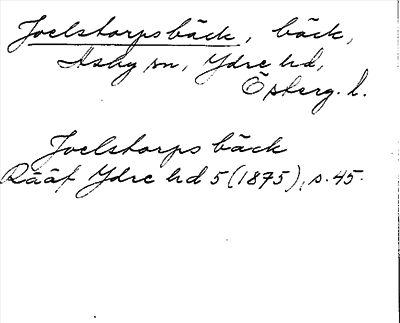 Joelstorpsbäck, bäck,
Asby sn, Ydre hd,
Österg. l.
Joelstorps bäck
Rääf Ydre hd 5 (1875), s. 45.